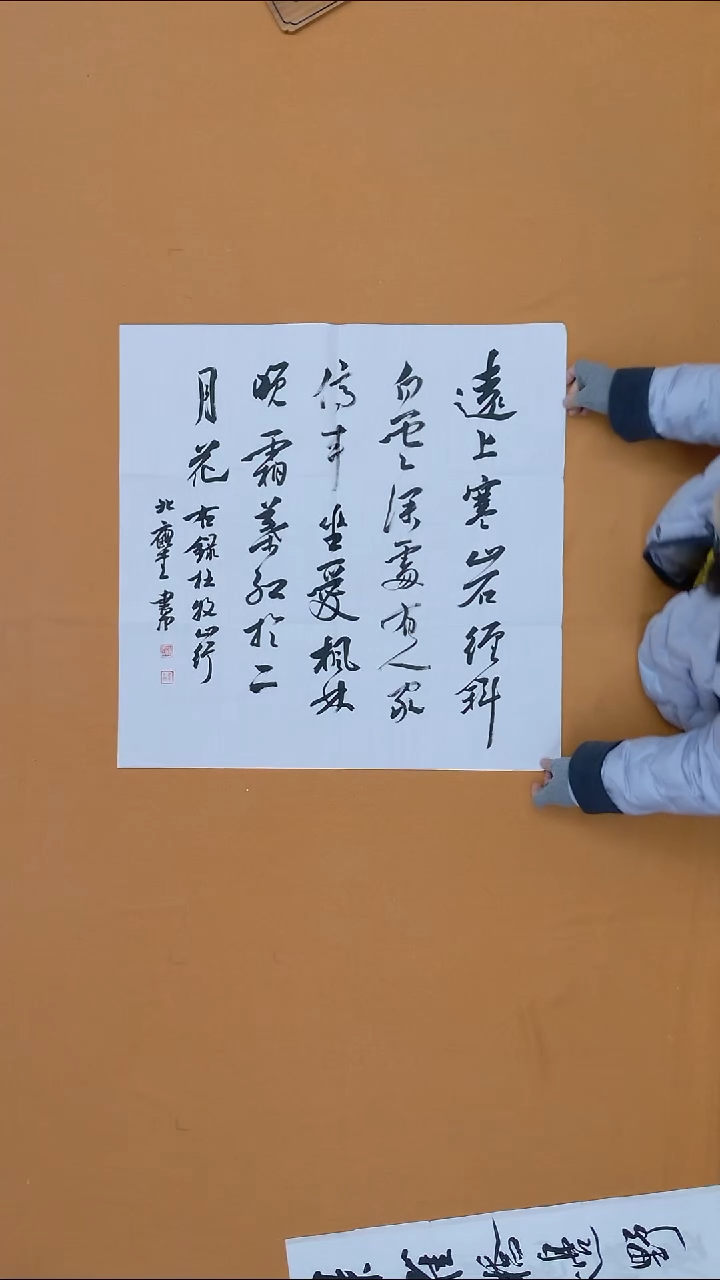 遠上寒山石徑斜
白雲深處有人家
停車坐愛楓林
晚霜葉紅於二
月花
右錄杜牧山行
北
書